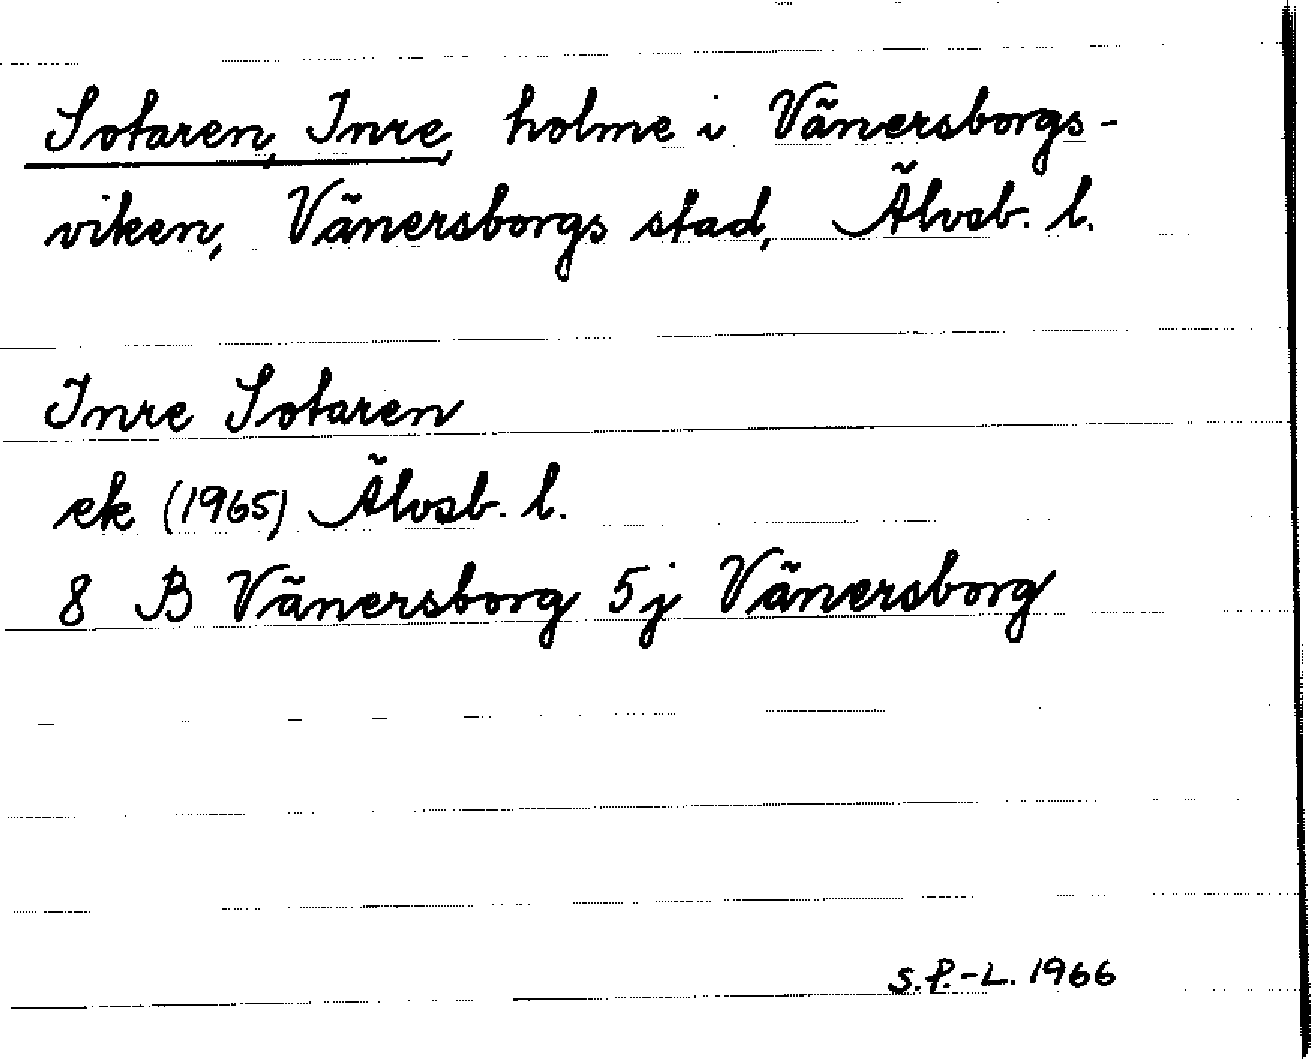 Sotaren, Inre, holme i Vänersborgs-
viken, Vänersborgs stad, Älvsb. l.
Inre Sotaren
ek (1965) Älvsb. l.
8 B Vänersborg 5j Vänersborg
S.P.-L. 1966